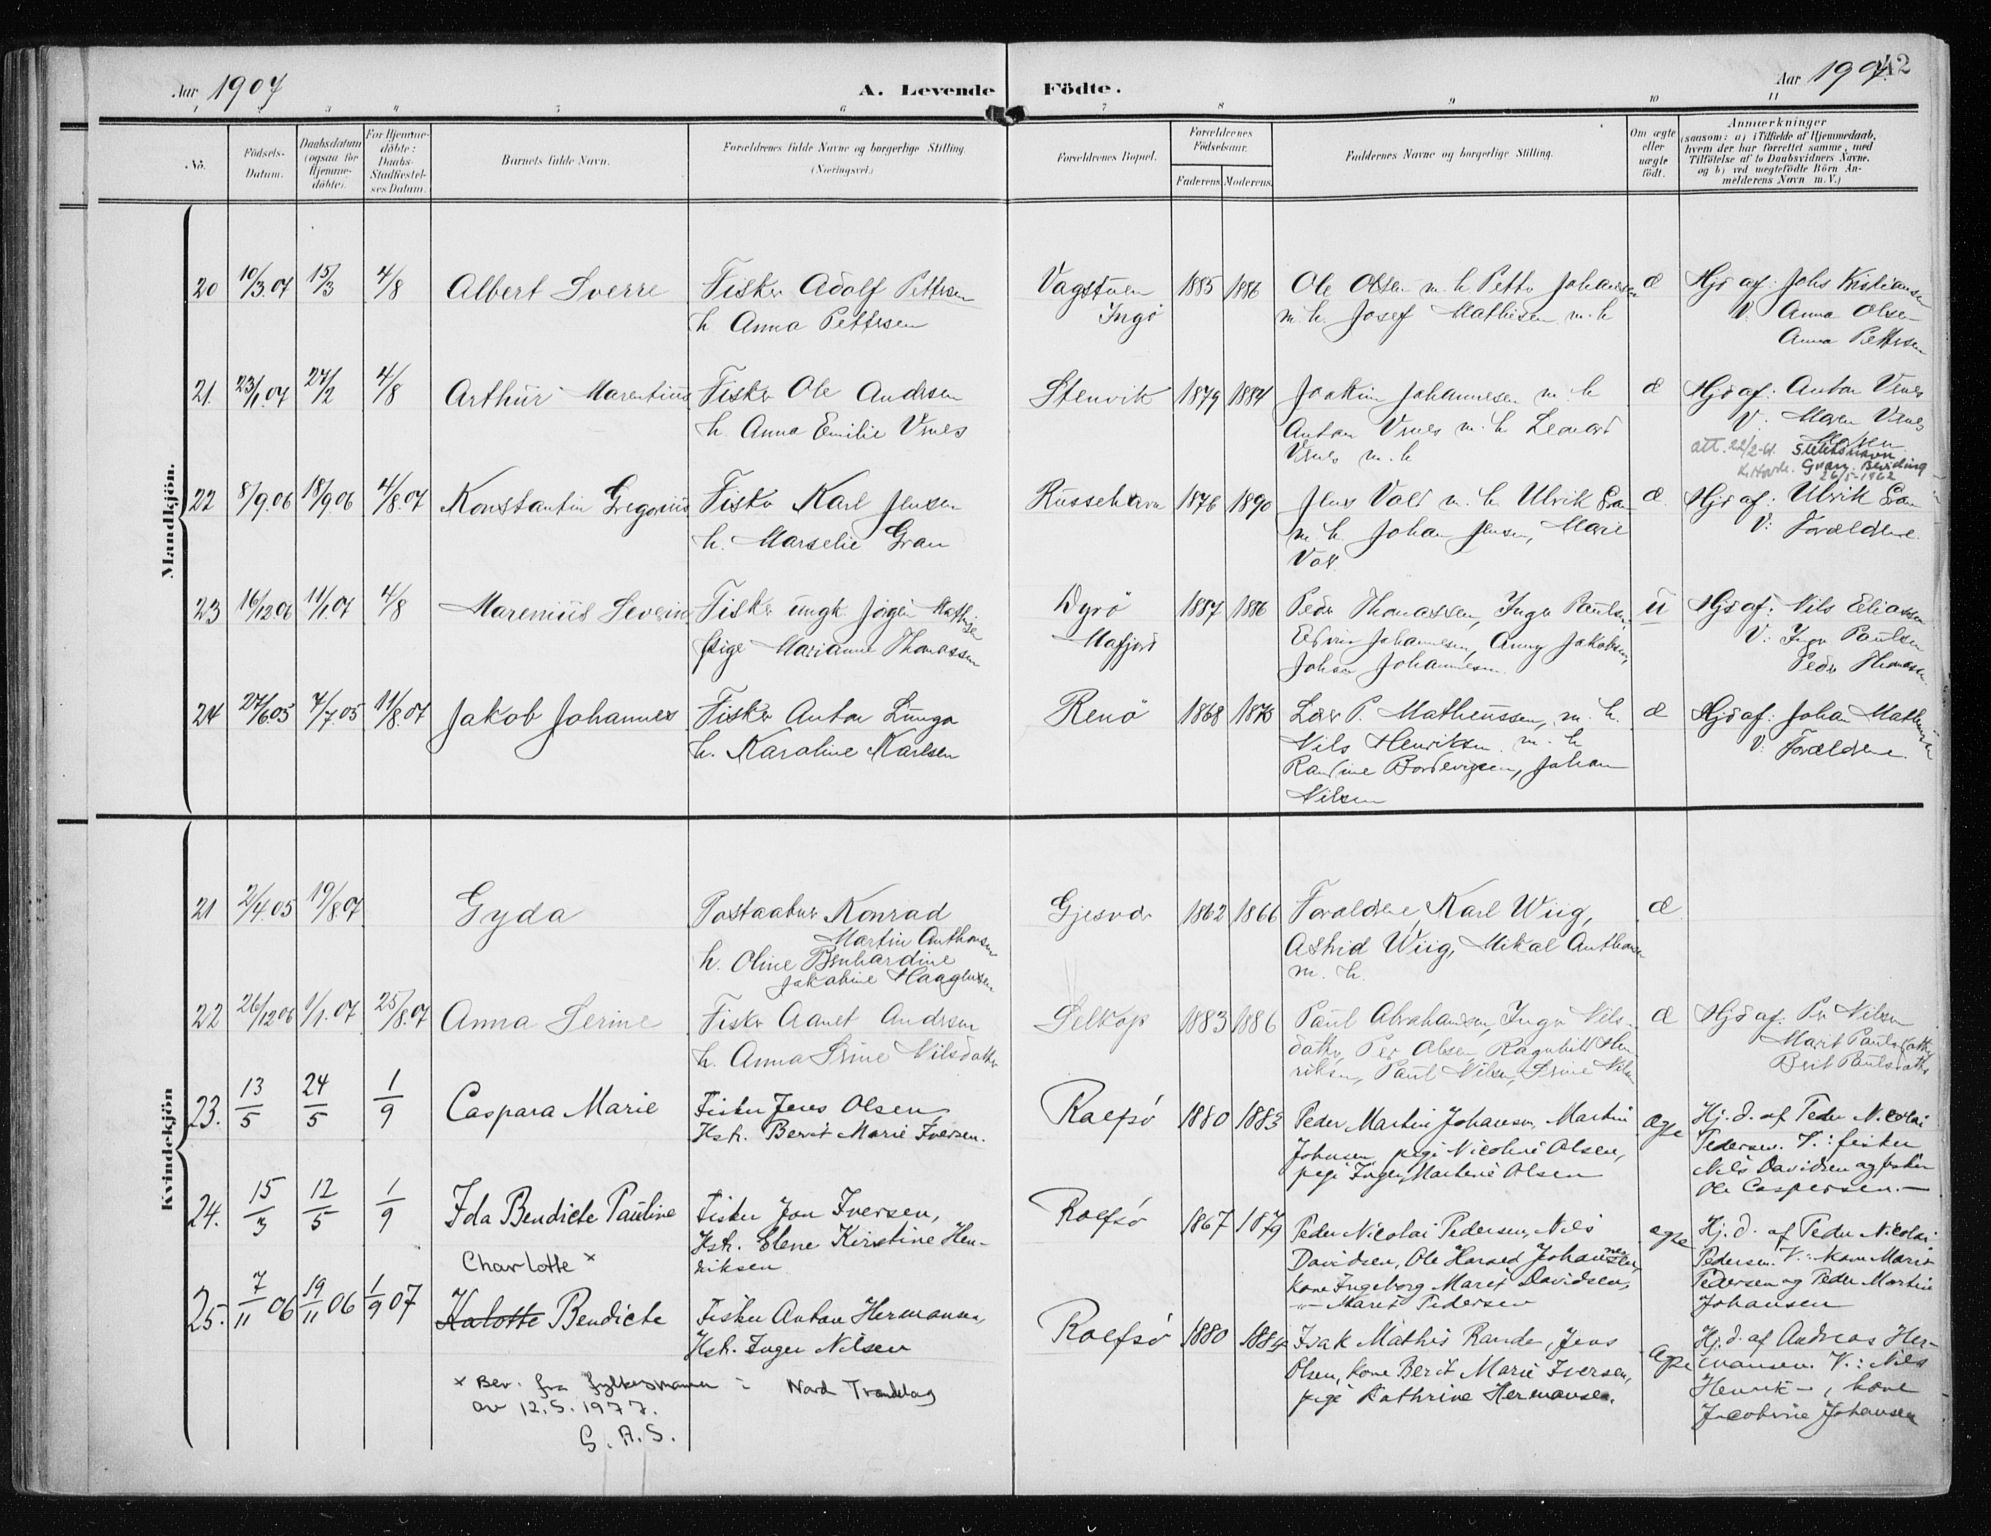 Aar 1907
A. Levende Födte.
Aar 1907.
42
1 2 3 4 5 6 7 8 9 10 11
No.
Födsels-Datum.
Daabsdatum (ogsaa for Hjemmedöbte).
For Hjemmedöbte: Daabs-Stadfæstelses Datum.
Barnets fulde Navn.
Forældrenes fulde Navne og borgerlige Stilling. (Næringsvei.)
Forældrenes Bopæl.
Forældrenes Födselsaar.
Faderens. Moderens.
Faddernes Navne og borgerlige Stilling.
Om ægte eller uægte födt.
Anmærkninger
(saasom: a) i Tilfælde af Hjemmedaab, hvem der har forrettet samme, med Tilföielse af to Daabsvidners Navne, og b) ved uægtefödte Börn Anmelderens Navn m. V.)
Mandkjön.
20 10/3.07 15/3 4/8 Albert Sverre Fisker Adolf Pettersen Vagstuen 1885 1886 Ole Olsen m. h Petter Johansen æ Hjd af: Johs Kristiansen
h Anna Pettersen Ingö m. h. Josef Mathisen m. h V. Anna Olsen
Anna Pettersen
21. 23/1.07 27/2 4/8 Arthur Marentius Fisker Ole Andersen Stenvik 1879 1884 Joakim Johannesen m. h æ Hjd af: Anton Vrnes
h. Anna Emilie Vrnes Anton Vrnes m. h Leonard V. Maren Vrnes
Vrnes m. h
att. 22/2-61 Slektsnavn
Gran. Bevilling
26/5-1962
22 8/9.06 18/9 06 4/8.07 Konstantin Gregorius Fisker Karl Jensen Russehavn 1876 1890 Jens Vold m. h. Ulrik Gran æ Hjd af: Ulrik Gran
h. Marselie Gran m. h. Johan Jensen, Marie V: Forældrene.
Vold
23 16/12.06 11/1.07 4/8 Marenius Severin Fisker ungk. Jörgen Mathise Dyrö 1887 1886 Peder Thomassen, Inger Paulsen, u Hjd af: Nils Eliassen
pige Marianne Thomassen Mafjord Edvin Johannesen, Anny Jakobsen, V: Inger Paulsen
Johan Johannesen Peder Thomassen
24 27/6.05 7/7.05 11/8.07 Jakob Johannes Fisker Anton Lunga Renö 1868 1873 Peder P. Matheussen, m. h. æ Hjd af: Johan Matheussen
h. Karoline Karlsen Nils Henriksen m. h V: Forældrene
Randine Bordevigsen, Johan
Nilsen
Kvindekjön
21 2/4.05 19/8.07 Gyda Postaabner Konrad Gjesvær 1862 1866 Forældrene, Karl Wiig, æ
Martin Anthonsen Astrid Wiig, Mikal Anthonsen
h. Oline Bernhardine m. h.
Jakobine Haagensen
22 26/12 06 1/1.07 25/8.07 Anna Serine Fisker Aanet Andersen Selkop 1883 1886 Paul Abrahamsen, Inger Nils- æ Hjd af: Per Nilsen
h. Anna Serine Nilsdatter datter, Per Olsen Ragnhild Hen- Marit Paulsdatter
riksen, Paul Nilsen, Serine Nilsen Berit Paulsdatter
23. 13/5 24/5 1/9 Caspara Marie Fisker Jens Olsen, Rolfsö 1880 1883 Peder Martin Johansen, Martin ægte Hj. d. af Peder Nicolai
Hstr. Berit Marie Iversen. Johnsen, pige Nicoline Olsen, Pedersen. V.: fisker
pige Inger Marlene Olsen Nils Davidsen og fisker
Ole Caspersen.—
24. 15/3 12/5 1/9 Ida Bendicte Pauline Fisker Jon Iversen, Rolfsö 1867 1879 Peder Nicolai Pedersen, Nils ægte Hj. d. af Peder Nicolai
Hstr. Elene Kirstine Hen- Davidsen, Ole Harald Johannesen, Pedersen. V.: kone Marit
riksen kone Ingeborg Marit Davidsen, Pedersen og Peder Martin
—"— Marit Pedersen Johansen
Charlotte ×
25. 7/11 06 19/11 06 1/9 07 Kalotte Bendicte Fisker Anton Hermansen, Rolfsö 1880 1884 Isak Mathis Rander, Jens ægte Hj. d. af Andreas Her-
Hstr. Inger Nilsen Olsen, kone Berit Marie Iversen, mansen. V.: Nils
pige Kathrine Hermansen. Henrik — , kone
Jacobine Johansen
× Bev. fra fylkesmannen i Nord Trøndelag
av 12.5.1977.
G. A. S.